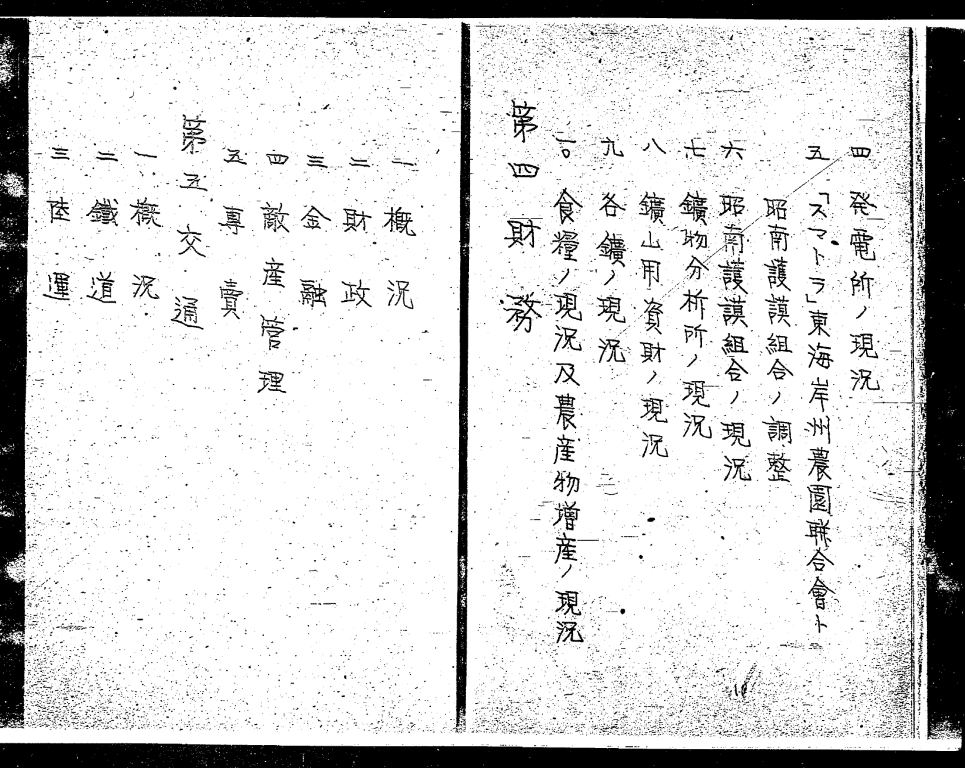 四 発電所ノ現況
五 「スマトラ」東海岸州農園聯合會ト
昭南護謨組合ノ調整
六 昭南護謨組合ノ現況
七 鑛物分析所ノ現況
八 鑛山用資財ノ現況
九 各鑛ノ現況
一〇 食糧ノ現況及農産物増産ノ現況
第四 財務
一 概況
二 財政
三 金融
四 敵産管理
五 専賣
第五 交通
一 概況
二 鐵道
三 陸運